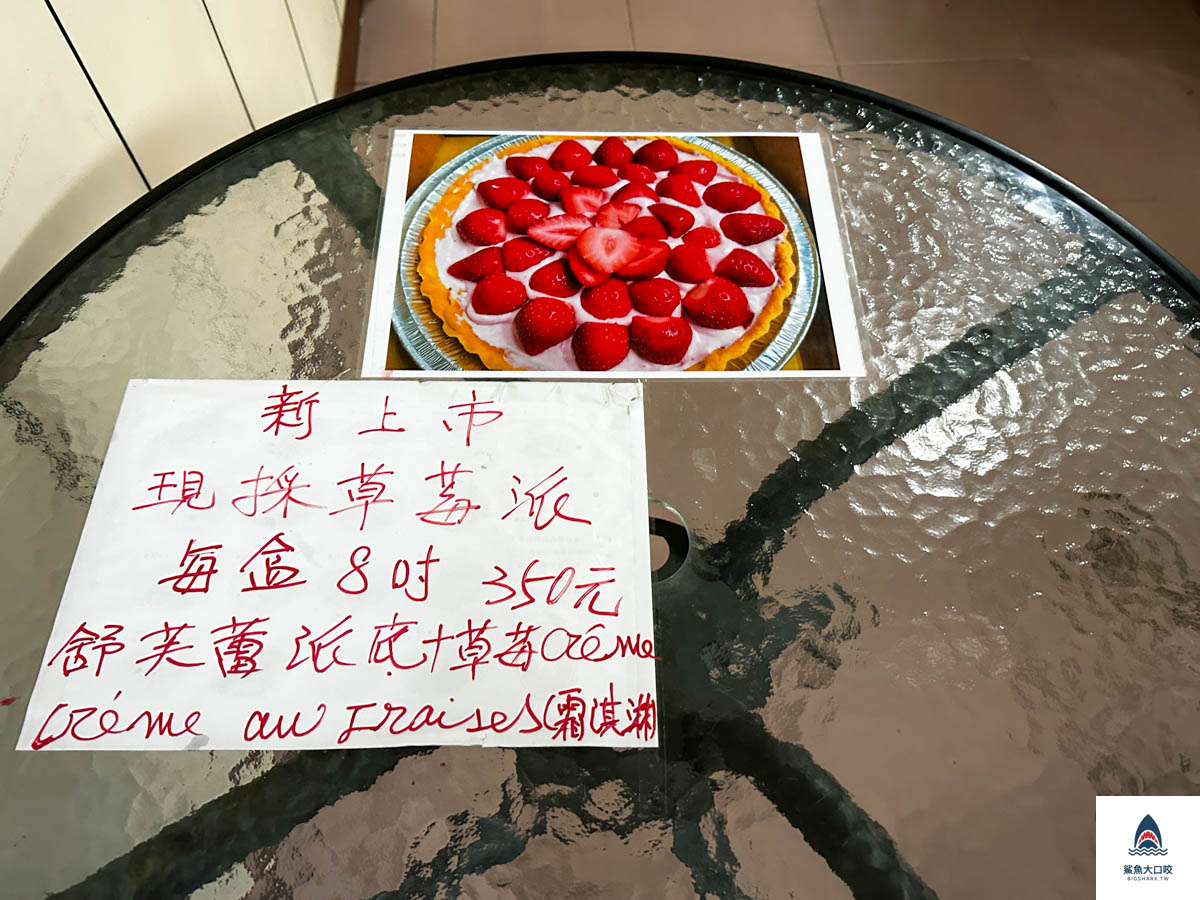 新上市
現採草莓派
每盒8吋 350元
舒芙蕾派底+草莓Créme
Créme au Fraises(霜淇淋)
鯊魚大口咬
BIGSHARK.TW